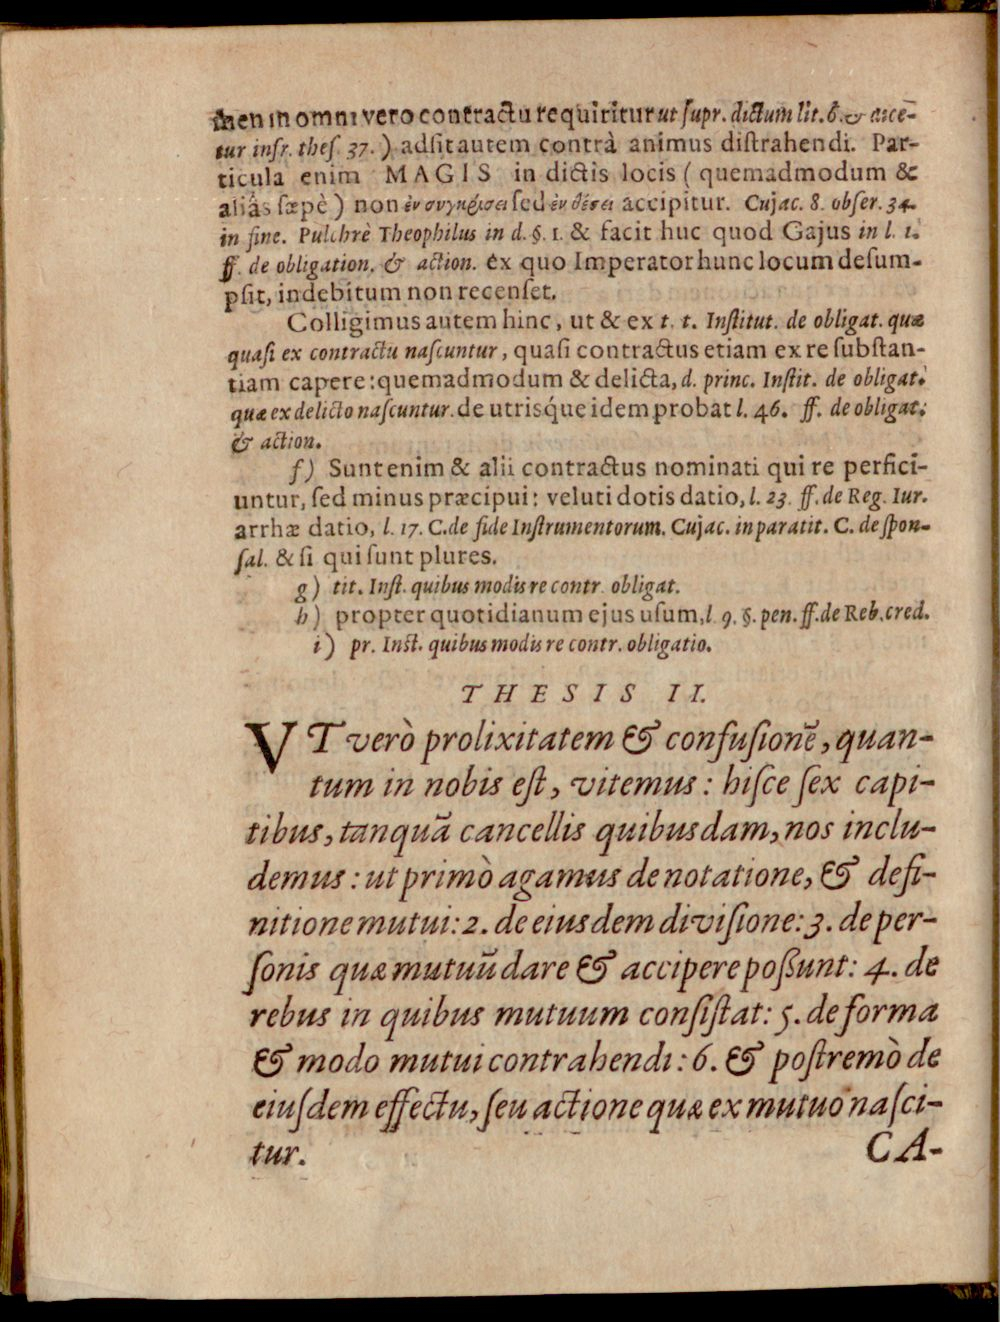 men in omni vero contractu requiritur ut supr. dictum lit. 6. & dice-
tur infr. thes. 37. ) adsit autem contrà animus distrahendi. Par-
ticula enim MAGIS in dictis locis ( quemadmodum &
aliâs sæpè ) non ἐν συγκρίσει sed ἐν θέσει accipitur. Cujac. 8. obser. 34.
in fine. Pulchrè Theophilus in d. §. 1. & facit huc quod Gajus in l. 1.
ff. de obligation. & action. ex quo Imperator hunc locum desum-
psit, indebitum non recenset.
Colligimus autem hinc, ut & ex t. t. Institut. de obligat. quæ
quasi ex contractu nascuntur, quasi contractus etiam ex re substan-
tiam capere: quemadmodum & delicta, d. princ. Instit. de obligat.
quæ ex delicto nascuntur. de utrisque idem probat l. 46. ff. de obligat.
& action.
f) Sunt enim & alii contractus nominati qui re perfici-
untur, sed minus præcipui: veluti dotis datio, l. 23. ff. de Reg. Iur.
arrhæ datio, l. 17. C. de fide Instrumentorum. Cujac. in paratit. C. de spon-
sal. & si qui sunt plures.
g) tit. Inst. quibus modis re contr. obligat.
h) propter quotidianum ejus usum, l. 9. §. pen. ff. de Reb. cred.
i) pr. Inst. quibus modis re contr. obligatio.
THESIS II.
VT verò prolixitatem & confusionē, quan-
tum in nobis est, vitemus: hisce sex capi-
tibus, tanquā cancellis quibusdam, nos inclu-
demus: ut primò agamus de notatione, & defi-
nitione mutui: 2. de eiusdem divisione: 3. de per-
sonis quæ mutuū dare & accipere poßunt: 4. de
rebus in quibus mutuum consistat: 5. de forma
& modo mutui contrahendi: 6. & postremò de
eiusdem effectu, seu actione quæ ex mutuo nasci-
tur.
CA-